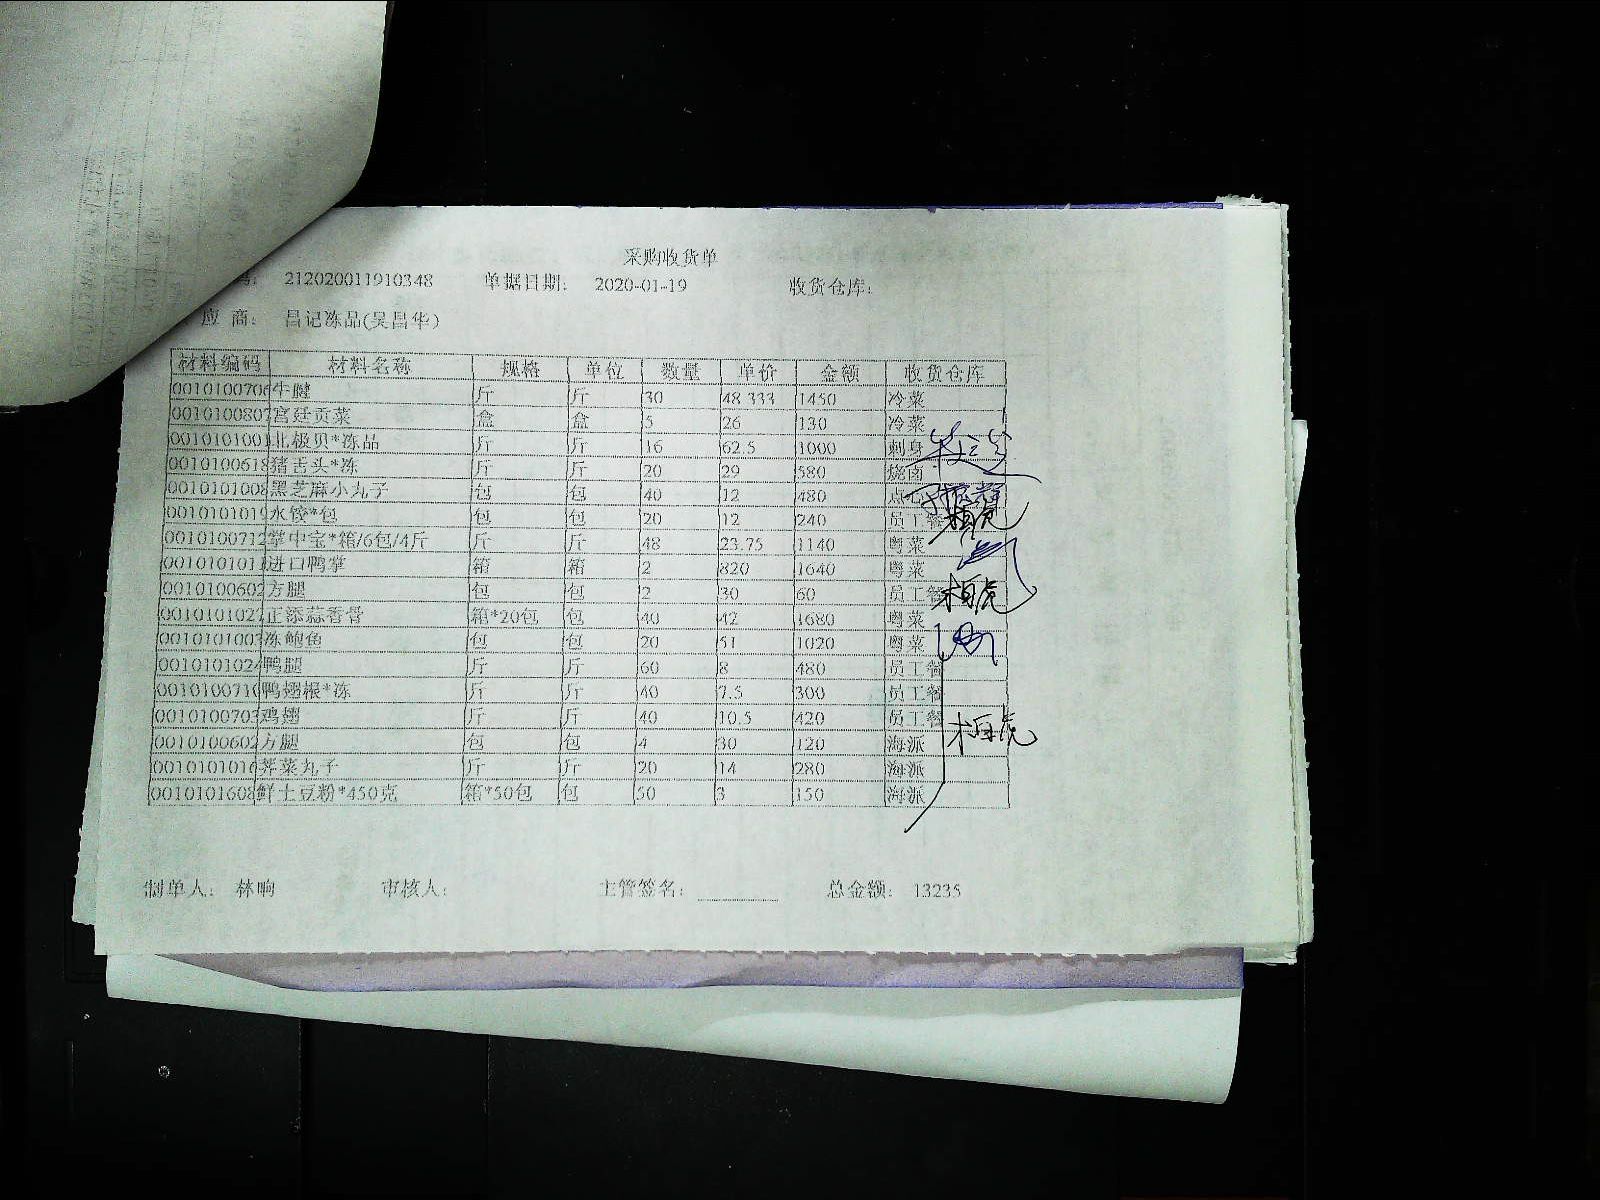 采购收货单
212020011910348 单据日期: 2020-01-19 收货仓库:
应 商: 昌记冻品(吴昌华)
材料编码 材料名称 规格 单位 数量 单价 金额 收货仓库
0010100706 牛腱 斤 斤 30 48.333 1450 冷菜
0010100807 宫廷贡菜 盒 盒 5 26 130 冷菜
0010101001 北极贝*冻品 斤 斤 16 62.5 1000 刺身
0010100618 猪舌头*冻 斤 斤 20 29 580 烧卤
0010101008 黑芝麻小丸子 包 包 40 12 480 点
0010101019 水饺*包 包 包 20 12 240 员工餐
0010100712 掌中宝*箱/6包/4斤 斤 斤 48 23.75 1140 粤菜
001010101 进口鸭掌 箱 箱 2 820 1640 粤菜
0010100602 方腿 包 包 2 30 60 员工餐 柏虎
001010102 正添蒜香骨 箱*20包 包 40 42 1680 粤菜
001010100 冻鲍鱼 包 包 20 51 1020 粤菜
001010102 鸭腿 斤 斤 60 8 480 员工餐
001010071 鸭翅根*冻 斤 斤 40 7.5 300 员工餐
001010070 鸡翅 斤 斤 40 10.5 420 员工餐 柏虎
0010100602 方腿 包 包 4 30 120 海派
001010101 荠菜丸子 斤 斤 20 14 280 海派
0010101608 鲜土豆粉*450克 箱*50包 包 50 3 150 海派
制单人: 林响 审核人: 主管签名: 总金额: 13235